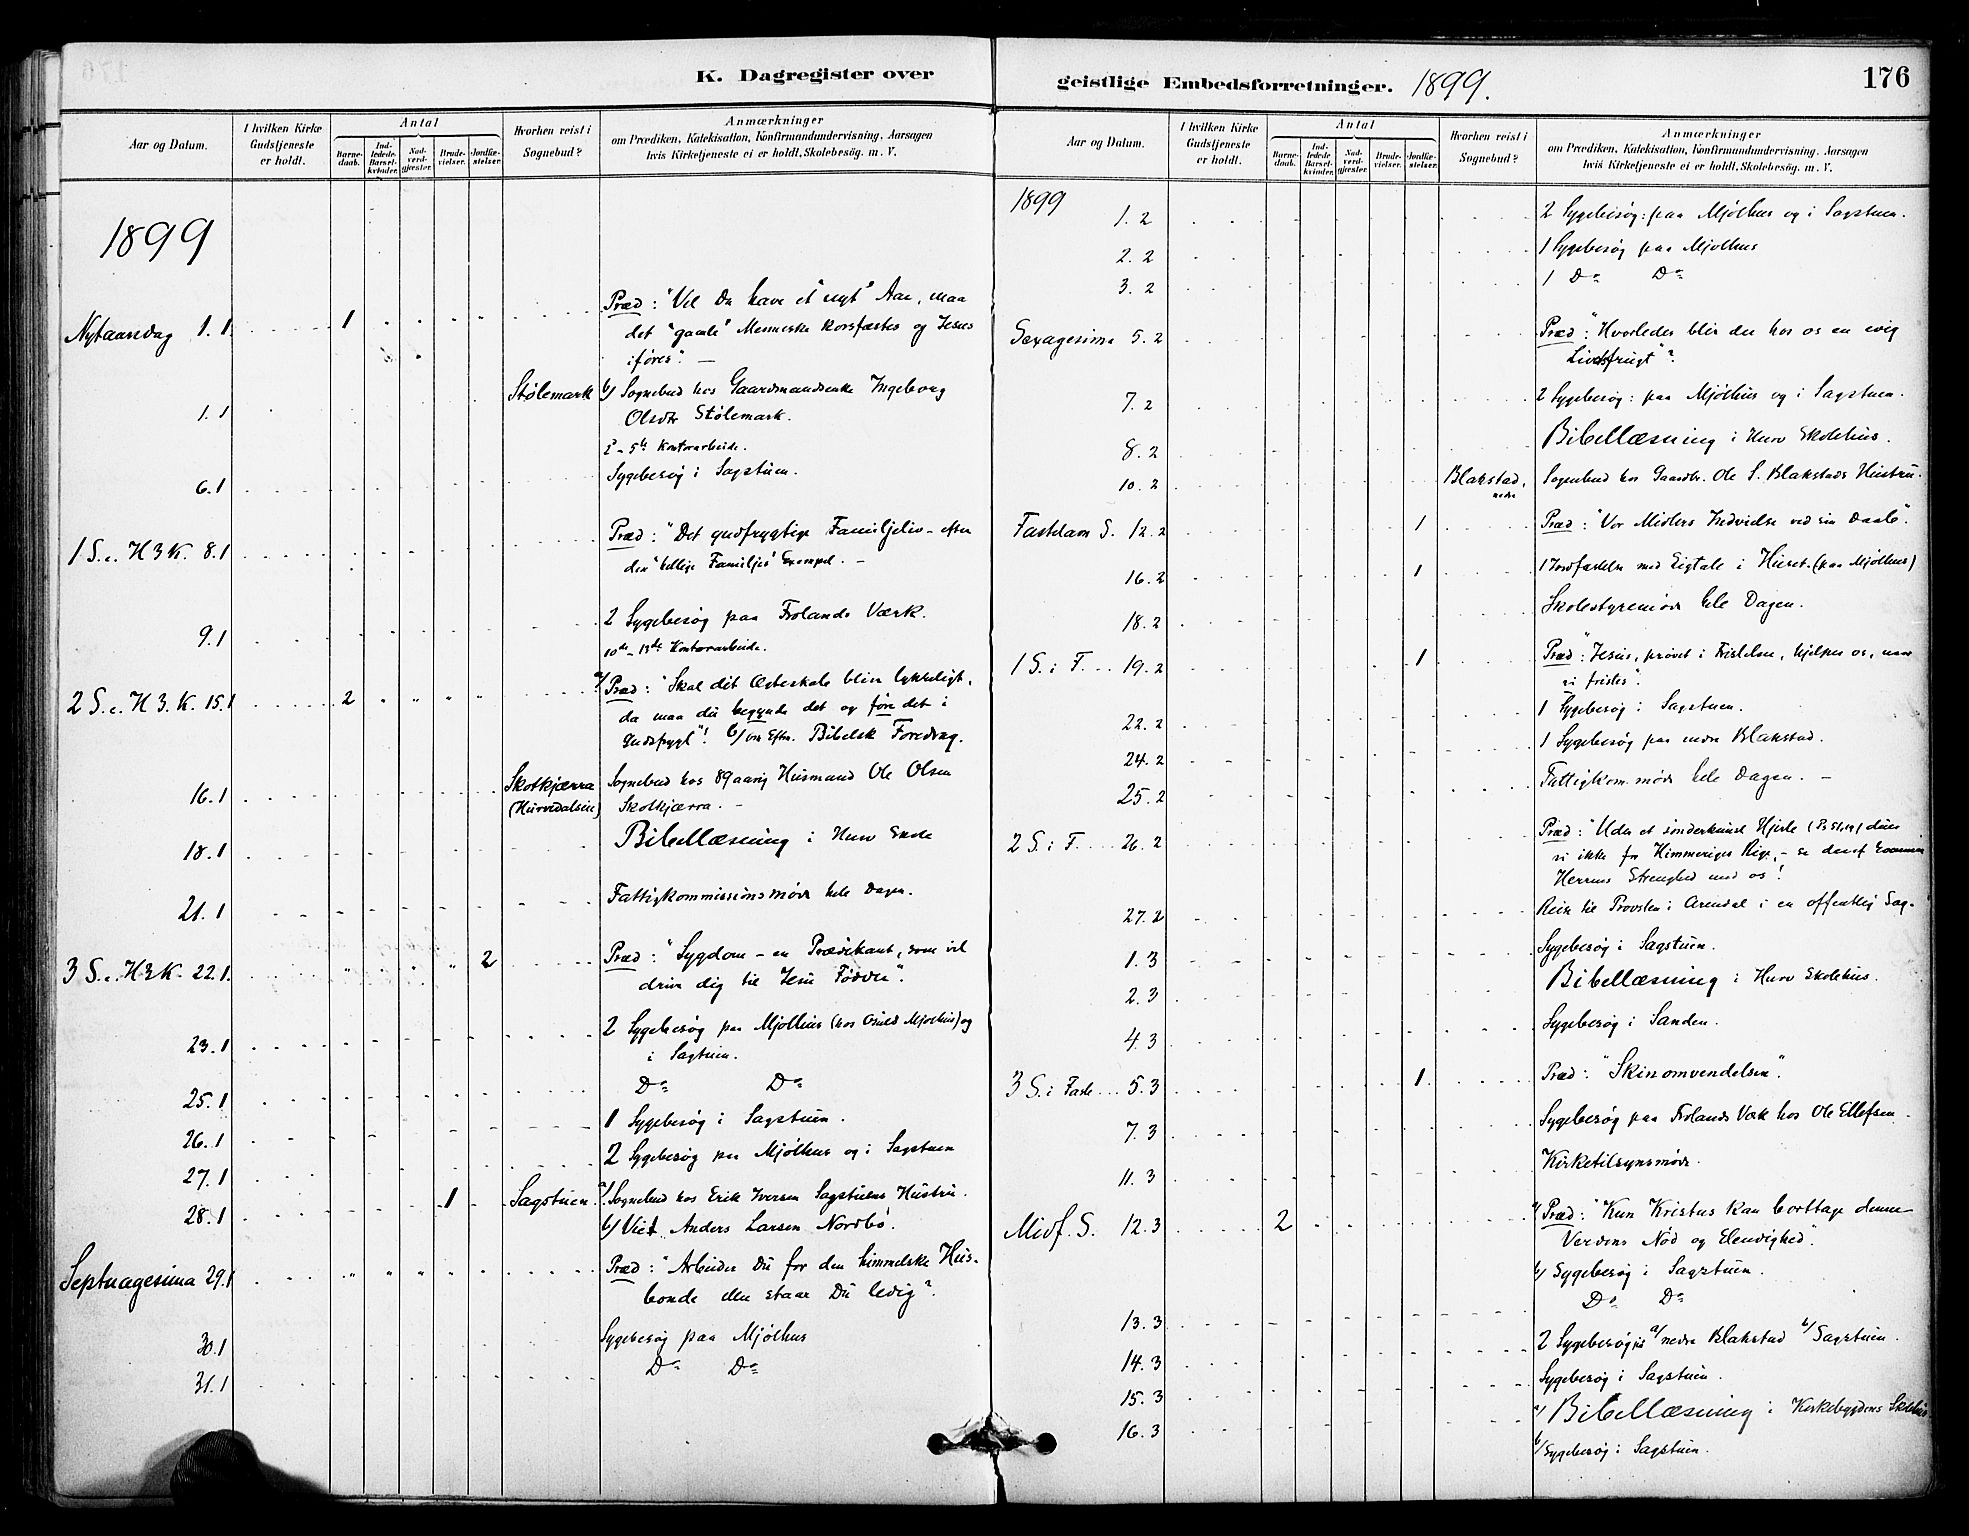 K. Dagregister over
Aar og Datum.
I hvilken Kirke Gudstjeneste er holdt.
Antal
Barne-daab.
Ind-ledede Barsel-kvinder.
Nad-verd-gjæster.
Brude-vielser.
Jordfæ-stelser.
Hvorhen reist i Sognebud?
Anmærkninger
om Prædiken, Katekisation, Konfirmandundervisning, Aarsagen
hvis Kirketjeneste ei er holdt, Skolebesøg. m. V.
1899
Nytaarsdag 1.1 1 Præd: "Vil Du have et "nyt" Aar, maa
det "gamle" Menneske korsfæstes og Jesus
iføres". —
1.1 Stølemark b/ Sognebud hos Gaardmandsenke Ingeborg
Olsdtr Stølemark.
2-5te Kontorarbeide.
6.1 Sygebesøg i Sagstuen.
1 S. e. H 3 K. 8.1 Præd: "Det gudfrygtige Familjeliv - efter
den "hellige Familjes" Exempel. —
9.1 2 Sygebesøg paa Frolands Værk.
10de-13de Kontorarbeide.
2 S. e. H 3. K. 15.1 2 a/ Præd: "Skal dit Ægteskab blive lykkeligt,
da maa du begynde det og føre det i
Gudsfrygt"! b/ om Eftm. Bibelsk Foredrag.
16.1 Skotkjærra (Hurvedalen) Sognebud hos 89aarig Husmand Ole Olsen
Skotkjærra. -
18.1 Bibellæsning i Hurv Skole
21.1 Fattigkommissionsmøde hele Dagen.
3 S. e. H 3 K. 22.1. 2 Præd: "Sygdom - en Prædikant, som vil
drive dig til Jesu Fødder".
23.1 2 Sygebesøg paa Mjølhus (hos Osuld Mjølhus) og
i Sagstuen.
25.1 Do Do
26.1 1 Sygebesøg i Sagstuen.
27.1 2 Sygebesøg paa Mjølhus og i Sagstuen
28.1 1 Sagstuen a/ Sognebud hos Erik Iversen Sagstuens Hustru.
b/ Viet Anders Larsen Nordbø.
Septuagesima 29.1 Præd: "Arbeider Du for den himmelske Hus-
bonde eller staar Du ledig"?
30.1 Sygebesøg paa Mjølhus
31.1 Do Do
geistlige Embedsforretninger. 1899.
176
Aar og Datum.
I hvilken Kirke Gudstjeneste er holdt.
Antal
Barne-daab.
Ind-ledede Barsel-kvinder.
Nad-verd-gjæster.
Brude-vielser.
Jordfæ-stelser.
Hvorhen reist i Sognebud?
Anmærkninger
om Prædiken, Katekisation, Konfirmandundervisning, Aarsagen
hvis Kirketjeneste ei er holdt, Skolebesøg. m. V.
1899
1.2 2 Sygebesøg: paa Mjølhus og i Sagstuen.
2.2 1 Sygebesøg paa Mjølhus
3.2 1 Do Do
Sexagesima 5.2 Præd: "Hvorledes blir der hos os en evig
Livsfrugt"?
7.2 2 Sygebesøg: paa Mjølhus og i Sagstuen.
8.2 Bibellæsning i Hurv Skolehus.
10.2 Blakstad, nedre Sognebud hos Gaardbr. Ole S. Blakstads Hustru.
Fastelavn S. 12.2 1 Præd: "Vor Midlers Indvielse ved sin Daab".
16.2 1 1 Jordfæstelse med Ligtale i Huset. (paa Mjølhus)
18.2 Skolestyremøde hele Dagen.
1 S. i F. 19.2 1 Præd: "Jesus, prøvet i Fristelser, hjelper os, naar
vi fristes".
22.2 1 Sygebesøg i Sagstuen.
24.2 1 Sygebesøg paa nedre Blakstad.
25.2 Fattigkom.møde hele Dagen. —
2 S. i F. 26.2 Præd: "Uden et sønderknust Hjerte (Ps 51,19) duer
vi ikke for Himmeriges Rige, - se deraf
Herrens Strenghed mod os!
27.2 Reise til Provsten i Arendal i en offentlig Sag.
1.3 Sygebesøg i Sagstuen.
2.3 Bibellæsning i Hurv Skolehus.
4.3 Sygebesøg i Sanden.
3 S. i Faste 5.3 1 Præd: "Skinomvendelsen".
7.3 Sygebesøg paa Frolands Værk hos Ole Ellefsen.
11.3 Kirketilsynsmøde.
Midf. S. 12.3 2 a/ Præd: "Kun Kristus kan borttage denne
Verdens Nød og Elendighed".
b/ Sygebesøg i Sagstuen.
13.3 Do Do
14.3 2 Sygebesøg: a/ nedre Blakstad b/ Sagstuen.
15.3 Sygebesøg i Sagstuen.
16.3 a/ Bibellæsning i Kirkebygdens Skolehus
b/ Sygebesøg i Sagstuen.